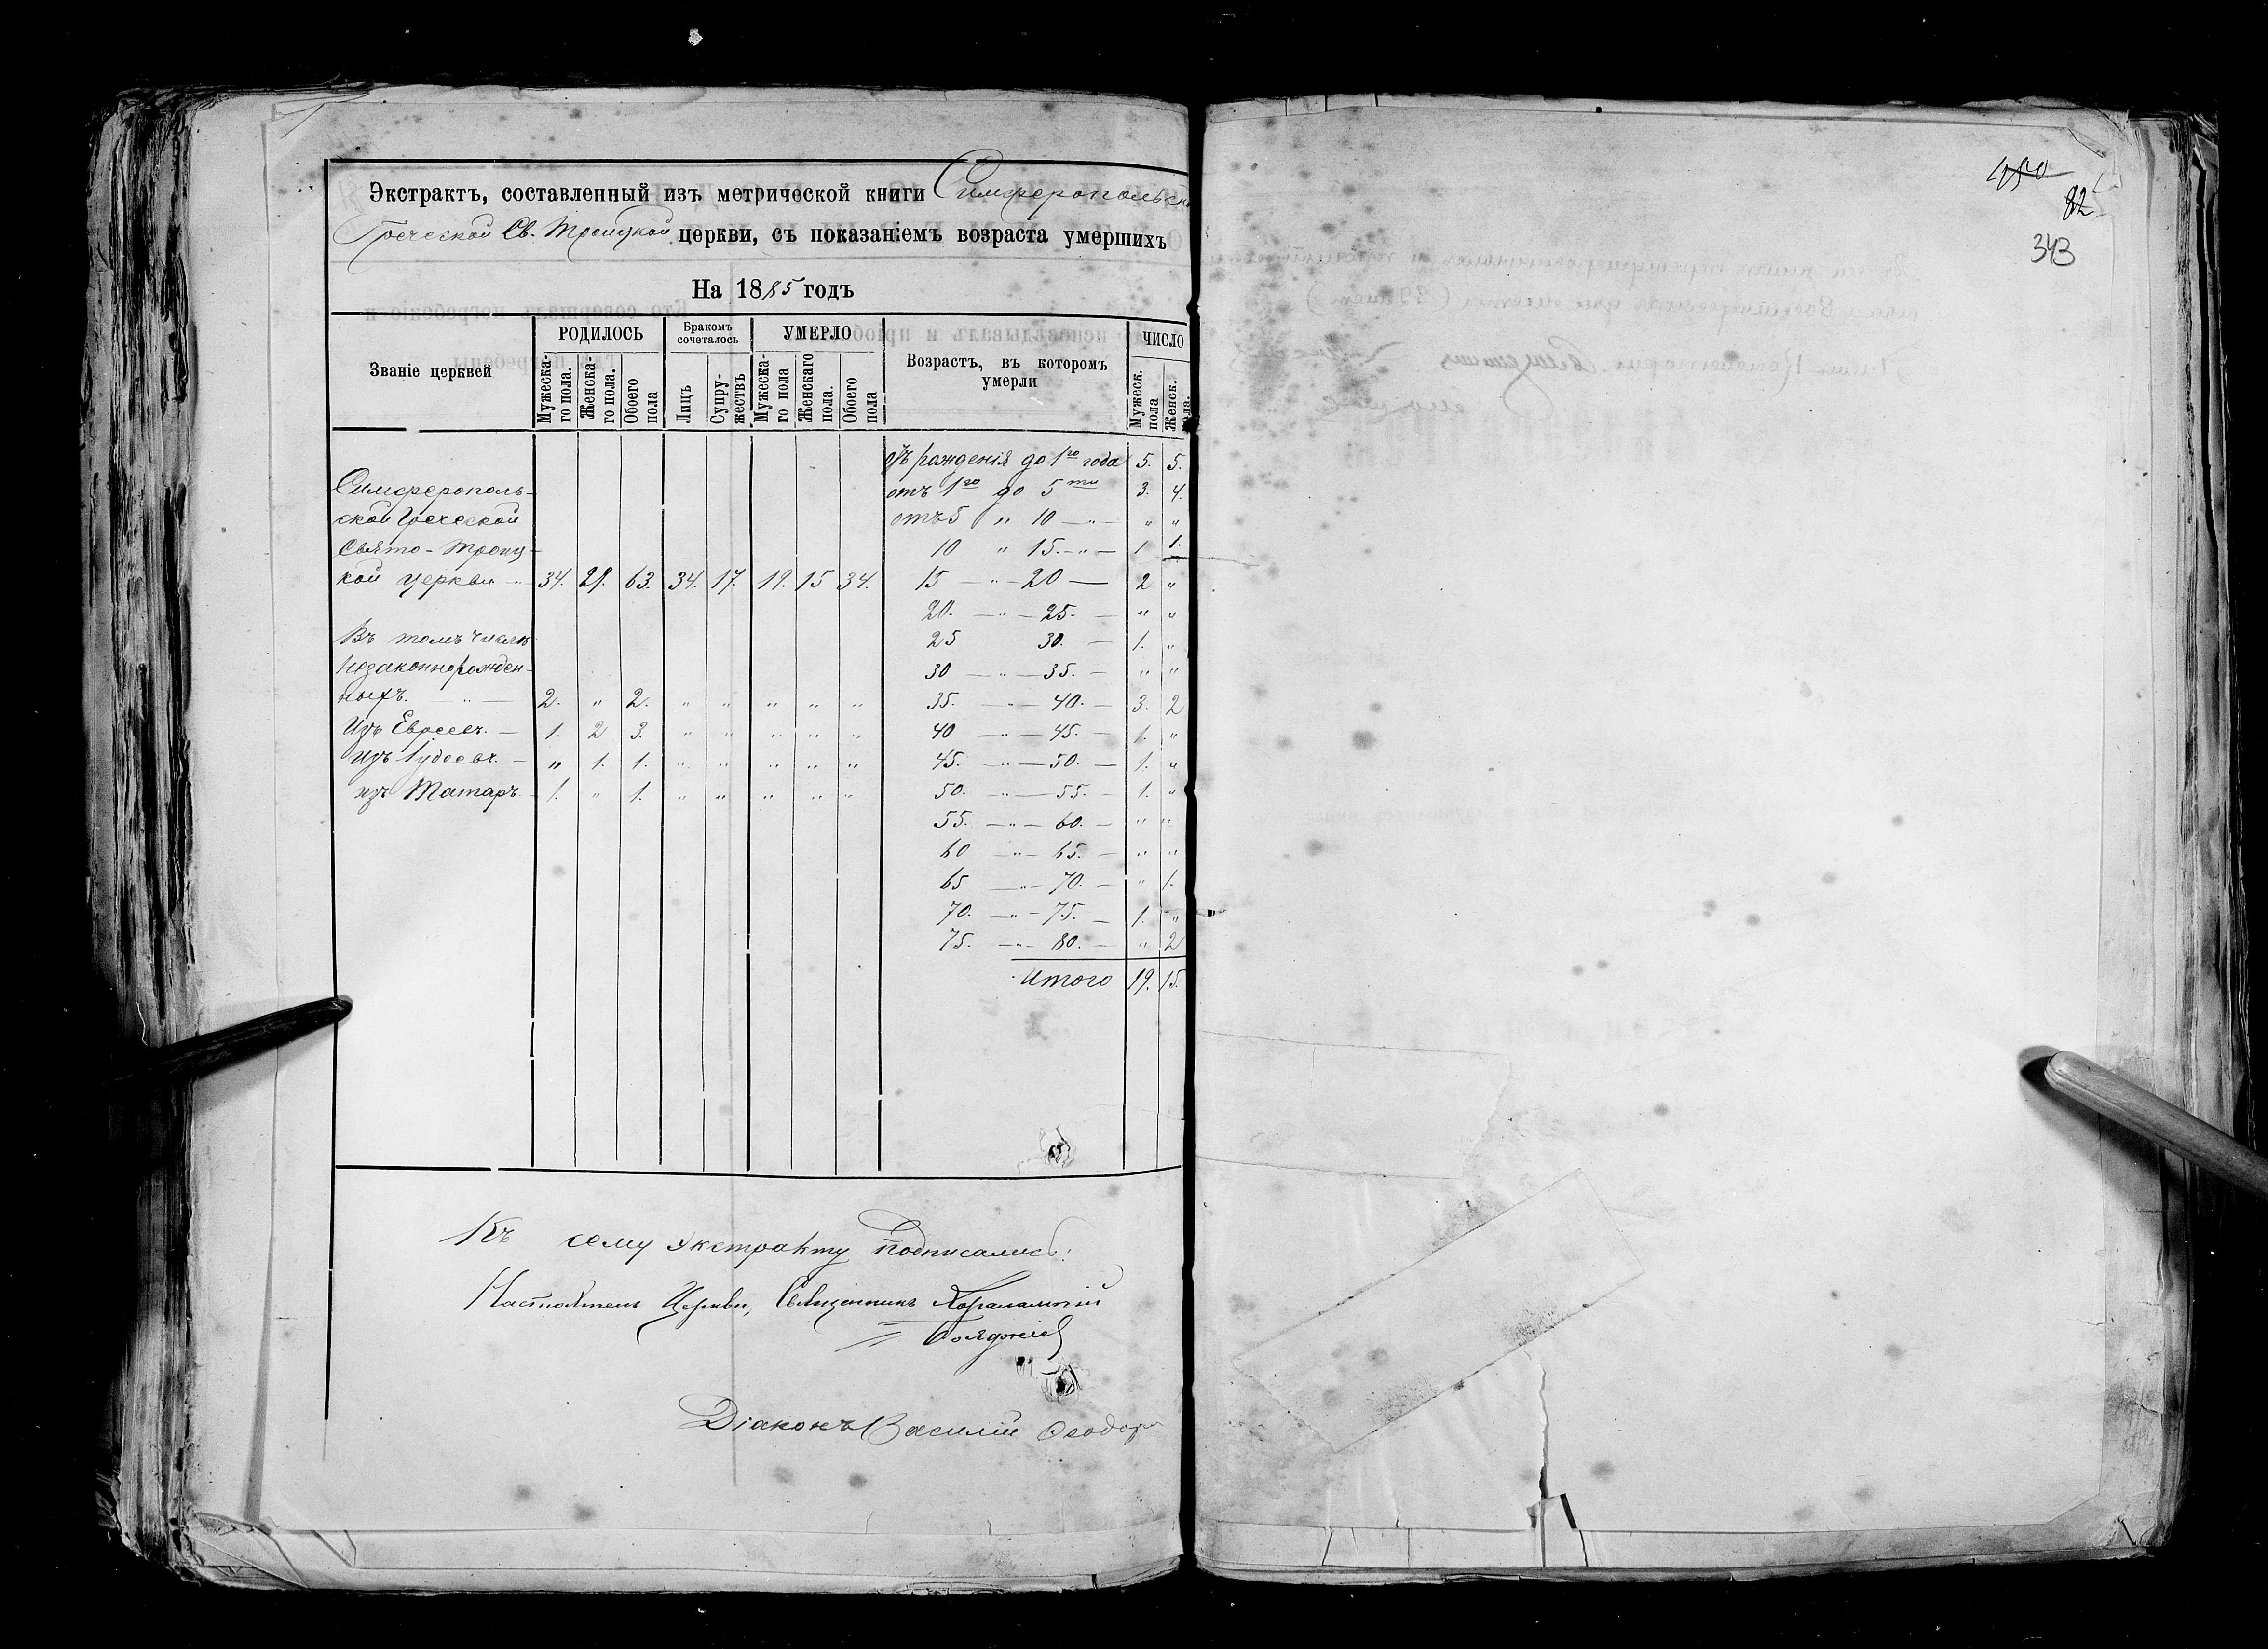 Экстрактъ, составленный изъ метрической книги Симферопольск
Греческой Св. Троицкой церкви, съ показаніемъ возраста умершихъ
На 1885 годъ
Званіе церквей | РОДИЛОСЬ | Бракомъ сочеталось | УМЕРЛО | Возрастъ, въ которомъ умерли | ЧИСЛО
Мужеска-го пола. | Женска-го пола. | Обоего пола | Лицъ | Супру-жествъ | Мужеска-го пола | Женскаго пола. | Обоего пола | Мужеск. пола | Женск. пола.
отъ рожденія до 1го года 5. 5.
Симферополь- отъ 1го до 5ти 3. 4.
ской Греческой отъ 5 " 10 — " — " "
Свято-Троиц- 10 " 15. — " — 1 1.
кой церкви — 34. 29. 63. 34. 17. 19. 15 34. 15 — " — 20 — 2 "
20. — " — 25. — " "
Въ томъ числѣ 25 30. — 1. "
незаконнорожден- 30 — " — 35. — " "
ныхъ. — " — 2. " 2. " " " " " 35. — " — 40. — 3. 2
Изъ Евреевъ. — 1. 2 3. " " " " " 40 — " — 45. — 1. "
изъ Іудеевъ. — " 1. 1. " " " " " 45. — " — 50. — 1. "
изъ Татаръ. — 1. " 1. " " " " " 50. — " — 55. — 1. "
55. — " — 60. — " "
60 — " — 65. — " "
65 — " — 70. — " 1.
70. — " — 75. — 1. "
75. — " — 80. — " 2
Итого 19. 15.
Къ сему экстракту подписались:
Настоятель Церкви, Священникъ Харалампій
Діаконъ Василій Ѳеодор
82
343